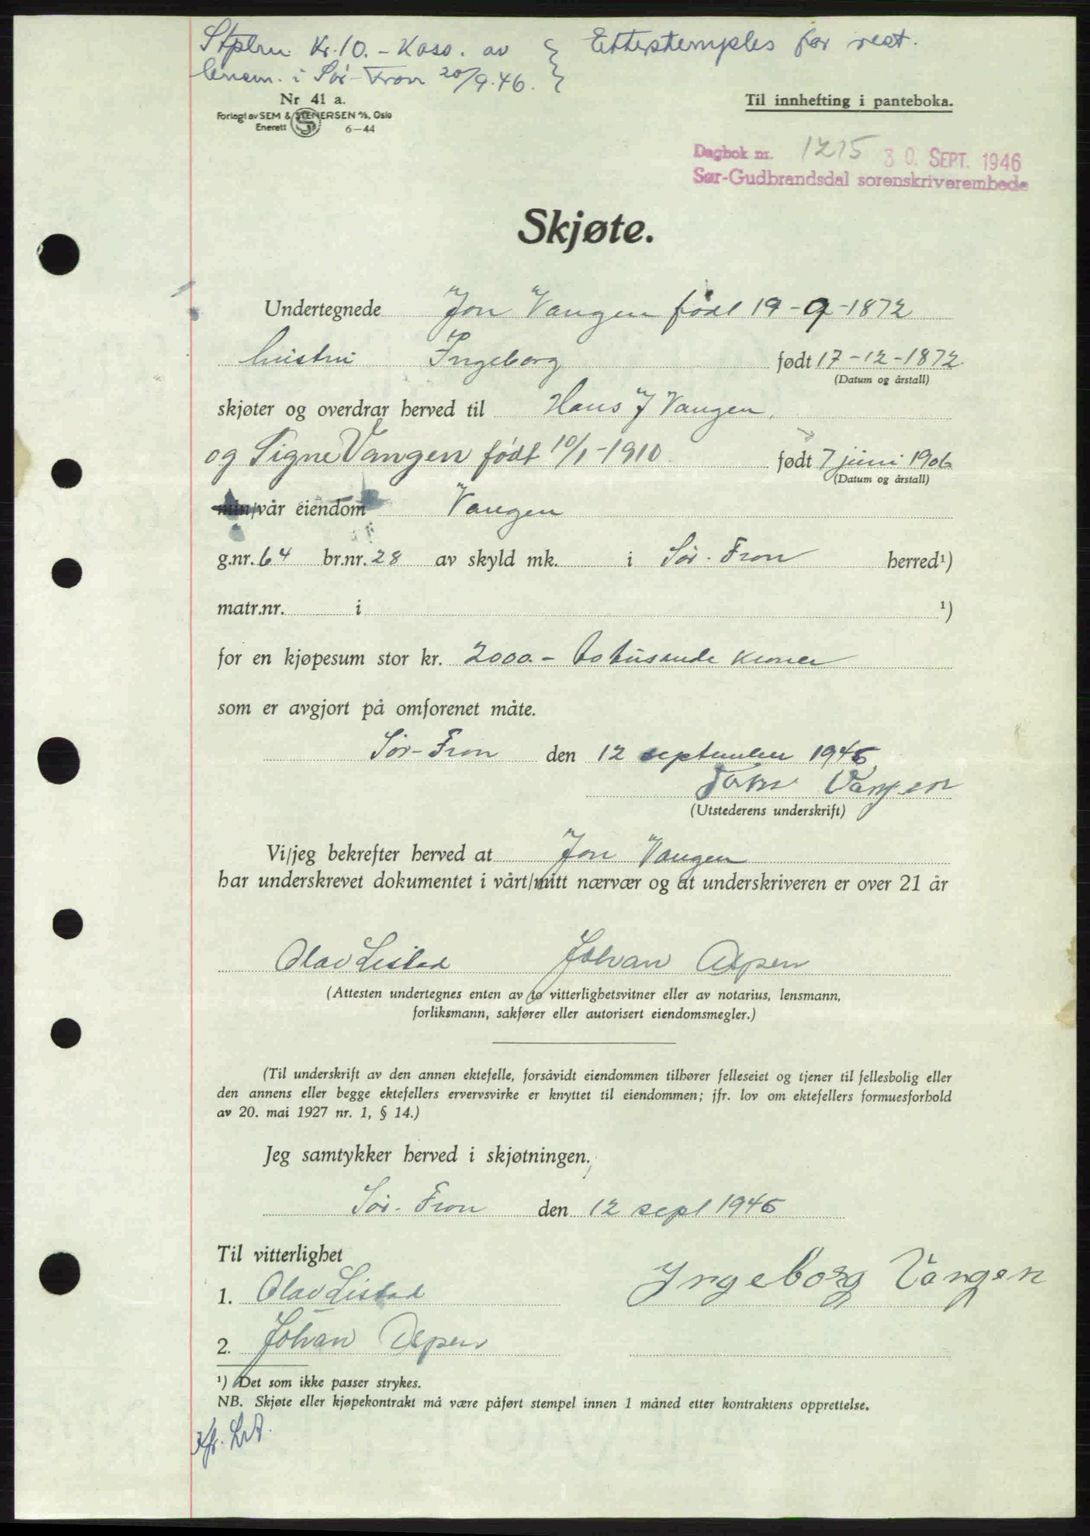 Stplm Kr. 10.- Kass. av } Etterstemples for rest.
lensm. i Sør-Fron 20/9.46.
Nr 41 a.
Forlagt av SEM & STENERSEN A/S, Oslo
Enerett S 6-44
Til innhefting i panteboka.
Dagbok nr. 1215 30. SEPT. 1946
Sør-Gudbrandsdal sorenskriverembede
Skjøte.
Undertegnede Jon Vangen født 19-9-1872
hustru Ingeborg født 17-12-1872.
(Datum og årstall)
skjøter og overdrar herved til Hans J Vangen,
og Signe Vangen født 10/1-1910 født 7 juni 1906
(Datum og årstall)
min/vår eiendom Vangen
g.nr. 64 br.nr. 28 av skyld mk. i Sør-Fron herred¹)
matr.nr. i ¹)
for en kjøpesum stor kr. 2000.- totusende kroner
som er avgjort på omforenet måte.
Sør-Fron den 12 september 1946
Jon Vangen
(Utstederens underskrift)
Vi/jeg bekrefter herved at Jon Vangen
har underskrevet dokumentet i vårt/mitt nærvær og at underskriveren er over 21 år
Olav Listad Johan Alpen
(Attesten undertegnes enten av to vitterlighetsvitner eller av notarius, lensmann,
forliksmann, sakfører eller autorisert eiendomsmegler.)
(Til underskrift av den annen ektefelle, forsåvidt eiendommen tilhører felleseiet og tjener til fellesbolig eller
den annens eller begge ektefellers ervervsvirke er knyttet til eiendommen; jfr. lov om ektefellers formuesforhold
av 20. mai 1927 nr. 1, § 14.)
Jeg samtykker herved i skjøtningen.
Sør-Fron den 12 sept 1946
Til vitterlighet
1. Olav Listad Ingeborg Vangen
2. Johan Alpen
¹) Det som ikke passer strykes.
NB. Skjøte eller kjøpekontrakt må være påført stempel innen 1 måned etter kontraktens opprettelse.